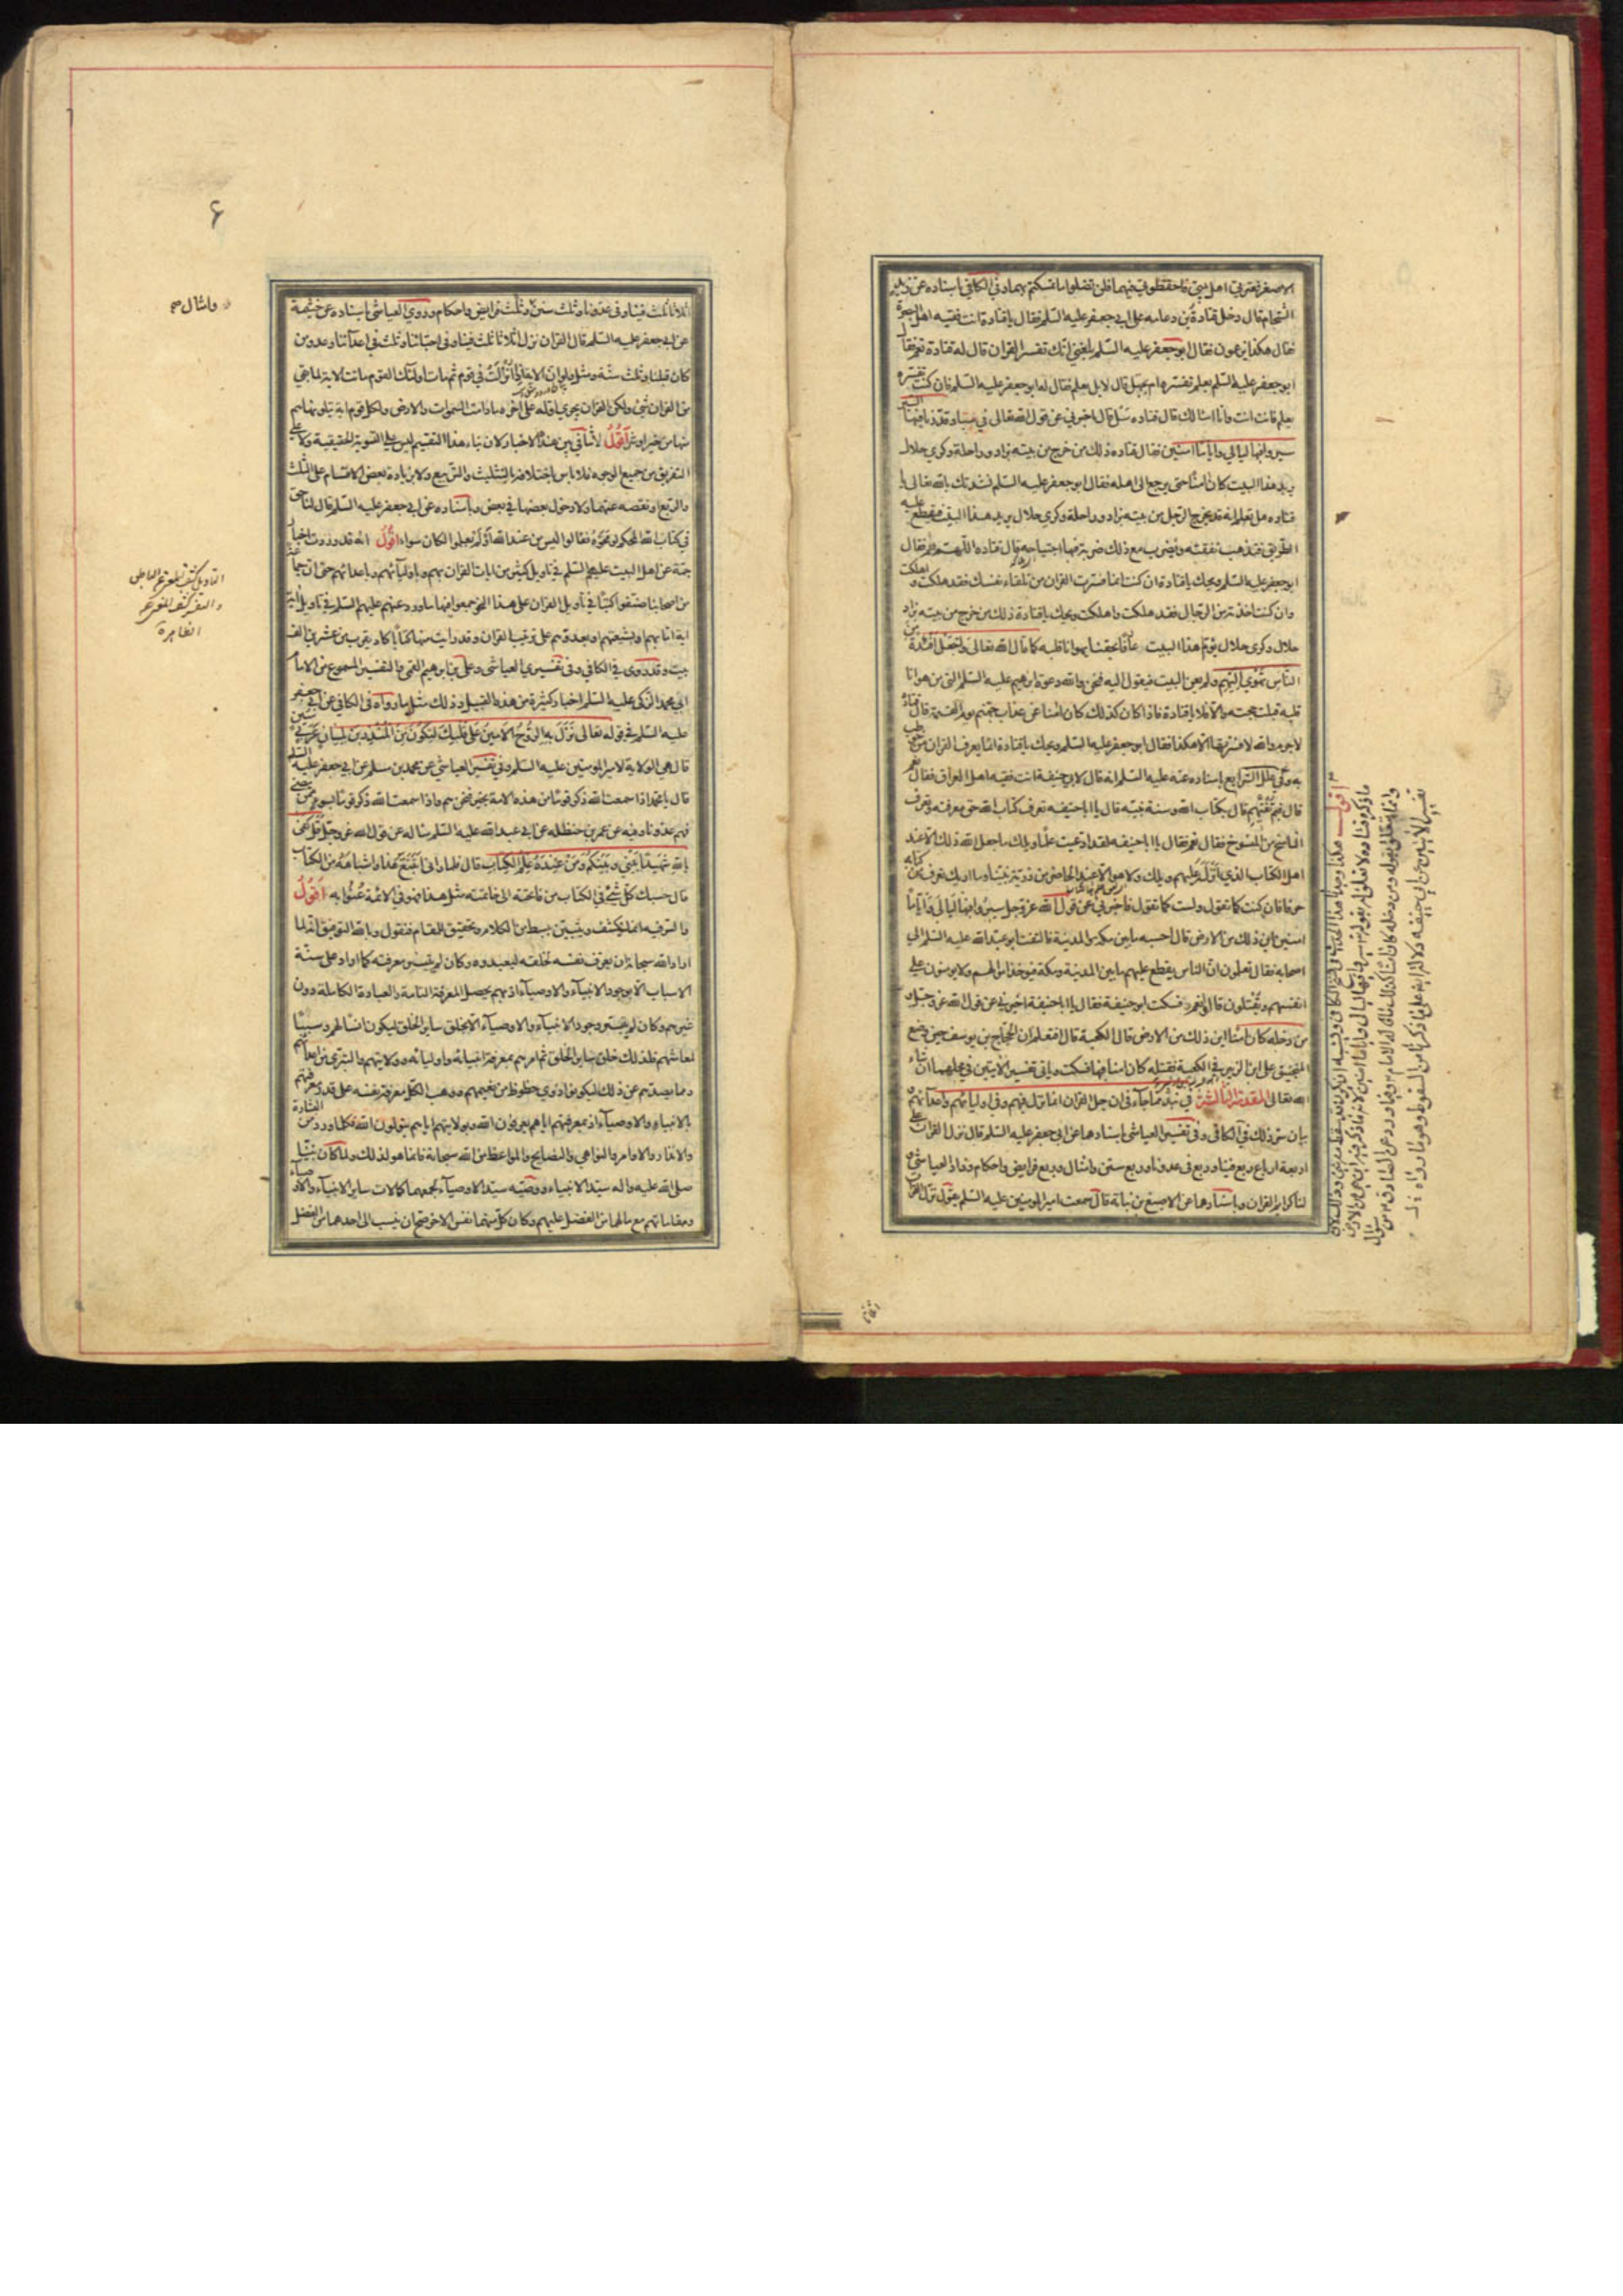 الاصغر فعترتي اهل بيتي فاحفظوني فيهما فلن تضلوا ما تمسكتم بهما وفي الكافي باسناده عن زيد
الشحام قال دخل قتادة بن دعامة على ابي جعفر عليه السلم فقال يا قتادة انت فقيه اهل البصرة
فقال هكذا يزعمون فقال ابو جعفر عليه السلم بلغني انك تفسر القران قال له قتادة نعم فقال
ابو جعفر عليه السلم بعلم تفسره ام بجهل قال لا بل بعلم فقال له ابو جعفر عليه السلم فان كنت تفسره
بعلم فانت انت وانا اسالك قال قتاده سل قال اخبرني عن قول الله تعالى في سبا وقدرنا فيها السير
سيروا فيها ليالي واياما امنين فقال قتاده ذلك من خرج من بيته بزاد وراحلة وكرى حلال
يريد هذا البيت كان امنا حتى يرجع الى اهله فقال ابو جعفر عليه السلم نشدتك بالله تعالى يا
قتاده هل تعلم انه قد يخرج الرجل من بيته بزاد وراحلة وكرى حلال يريد هذا البيت فيقطع عليه
الطريق فتذهب نفقته ويضرب مع ذلك ضربة فيها اجتياحه قال قتاده اللهم نعم فقال
ابو جعفر عليه السلم ويحك يا قتادة ان كنت انما فسرت القران من تلقاء نفسك فقد هلكت واهلكت
وان كنت اخذته من الرجال فقد هلكت واهلكت ويحك يا قتادة ذلك من خرج من بيته بزاد
حلال وكرى حلال يؤم هذا البيت عارفا بحقنا يهوانا قلبه كما قال الله تعالى واجعل افئدة من
الناس تهوي اليهم ولم يعن البيت فيقول اليه فنحن والله دعوة ابرهيم عليه السلم التي من هوانا
قلبه قبلت حجته والا فلا يا قتادة فاذا كان كذلك كان امنا من عذاب جهنم يوم القيمة قال قتادة
لا جرم والله لا فسرتها الا هكذا فقال ابو جعفر عليه السلم ويحك يا قتادة انما يعرف القران من خوطب
به وفي علل الشرايع باسناده عنه عليه السلم انه قال لابي حنيفة انت فقيه اهل العراق فقال نعم
قال فبم تفتيهم قال بكتاب الله وسنة نبيه قال يا ابا حنيفه تعرف كتاب الله حق معرفته وتعرف
الناسخ من المنسوخ فقال نعم فقال يا ابا حنيفه لقد ادعيت علما ويلك ما جعل الله ذلك الا عند
اهل الكتاب الذي انزل عليهم ويلك ولا هو الا عند الخاص من ذرية نبينا وما اراك تعرف من كتابه
حرفا فان كنت كما تقول ولست كما تقول فاخبرني عن قول الله عز وجل سيروا فيها ليالي واياما
امنين اين ذلك من الارض قال احسبه ما بين مكه والمدينة فالتفت ابو عبد الله عليه السلم الى
اصحابه فقال تعلمون ان الناس يقطع عليهم ما بين المدينة ومكة فيوخذ اموالهم ولا يومنون على
انفسهم ويقتلون قالوا نعم فسكت ابو حنيفة فقال يا ابا حنيفة اخبرني عن قول الله عز وجل و
من دخله كان امنا اين ذلك من الارض قال الكعبة قال افتعلم ان الحجاج بن يوسف حين وضع
المنجنيق على ابن الزبير في الكعبة فقتله كان امنا فيها فسكت وياتي تفسير الايتين في محلهما ان شاء
الله تعالى المقدمة الثالثة في نبذ مما جاء في ان جل القران انما نزل فيهم وفي اوليائهم واعدائهم و
بيان سر ذلك في الكافي وفي تفسير العياشي باسنادهما عن ابي جعفر عليه السلم قال نزل القران على
اربعة ارباع ربع فينا وربع في عدونا وربع سنن وامثال وربع فرايض واحكام وزاد العياشي و
لنا كرائم القران وباسنادهما عن الاصبغ بن نباتة قال سمعت امير المومنين عليه السلم يقول نزل القران
۶
وامثال صح
اثلاثا ثلث فينا وفي عدونا وثلث سنن وثلث فرايض واحكام وروى العياشي باسناده عن خيثمة
عن ابي جعفر عليه السلم قال القران نزل اثلاثا ثلث فينا وفي احبائنا وثلث في اعدائنا وعدو من
كان قبلنا وثلث سنة ومثل ولو ان الاية اذا نزلت في قوم ثم مات اولئك القوم ماتت الاية لما بقي
من القران شئ ولكن القران يجري اوله على اخره ما دامت السموات والارض ولكل قوم اية يتلونها هم
منها من خير او شر اقول لا تنافي بين هذه الاخبار لان بناء هذا التقسيم ليس على التسوية الحقيقية ولا على
التفريق من جميع الوجوه فلا باس باختلافه بالتثليث والتربيع ولا بزيادة بعض الاقسام على الثلث
والربع او نقصه عنهما ولا دخول بعضها في بعض وباسناده عن ابي جعفر عليه السلم قال لنا حق
في كتاب الله المحكم لو محوه فقالوا ليس من عند الله او لم يعلموا لكان سواء اقول انه قد وردت اخبار
جمة عن اهل البيت عليهم السلم في تاويل كثير من ايات القران بهم وباوليائهم وباعدائهم حتى ان جماعة
من اصحابنا صنفوا كتبا في تاويل القران على هذا النحو جمعوا فيها ما ورد عنهم عليهم السلم في تاويل اية
اية اما بهم او بشيعتهم او بعدوهم على ترتيب القران وقد رايت منها كتابا كاد يقرب من عشرين الف
بيت وقد روى في الكافي وفي تفسيري العياشي وعلي بن ابرهيم القمي والتفسير المسموع من الامام
ابي محمد الزكي عليه السلم اخبار كثيرة من هذه القبيل وذلك مثل ما رواه في الكافي عن ابي جعفر
عليه السلم في قوله تعالى نزل به الروح الامين على قلبك لتكون من المنذرين بلسان عربي مبين
قال هي الولاية لامير المومنين عليه السلم وفي تفسير العياشي عن محمد بن مسلم عن ابي جعفر عليه السلم
قال يا محمد اذا سمعت الله ذكر قوما من هذه الامة بخير فنحن هم واذا سمعت الله ذكر قوما بسوء ممن مضى
فهم عدونا وفيه عن عمر بن حنظله عن ابي عبد الله عليه السلم ساله عن قول الله عز وجل قل كفى
بالله شهيدا بيني وبينكم ومن عنده علم الكتاب قال فلما راني اتتبع هذا واشباهه من الكتاب
قال حسبك كل شئ في الكتاب من فاتحته الى خاتمته مثل هذا فهو في الائمة عنوا به اقول
والسر فيه انما ينكشف ويتبين ببسط من الكلام وتحقيق للمقام فنقول وبالله التوفيق انه لما
اراد الله سبحانه ان يعرف نفسه لخلقه ليعبدوه وكان لم يتيسر معرفته كما اراد على سنة
الاسباب الا بوجود الانبياء والاوصياء اذ بهم يحصل المعرفة التامة والعبادة الكاملة دون
غيرهم وكان لم يتيسر وجود الانبياء والاوصياء الا بخلق ساير الخلق ليكون انسا لهم وسببا
لمعاشهم فلذلك خلق ساير الخلق ثم امرهم بمعرفة انبيائه واوليائه وولايتهم والتبري من اعدائهم
ومما يصدهم عن ذلك ليكونوا ذوي حظوظ من نعيمهم ووهب الكل معرفة نفسه على قدر معرفتهم
بالانبياء والاوصياء اذ بمعرفتهم اياهم يعرفون الله وبولايتهم اياهم يتولون الله فكلما ورد من البشارة
والانذار والاوامر والنواهي والنصايح والمواعظ من الله سبحانه فانما هو لذلك ولما كان نبينا
صلى الله عليه واله سيد الانبياء ووصيه سيد الاوصياء لجمعهما كمالات ساير الانبياء والاوصياء
ومقاماتهم مع ما لهما من الفضل عليهم وكان كل منهما نفس الاخر صح ان ينسب الى احدهما من الفضل